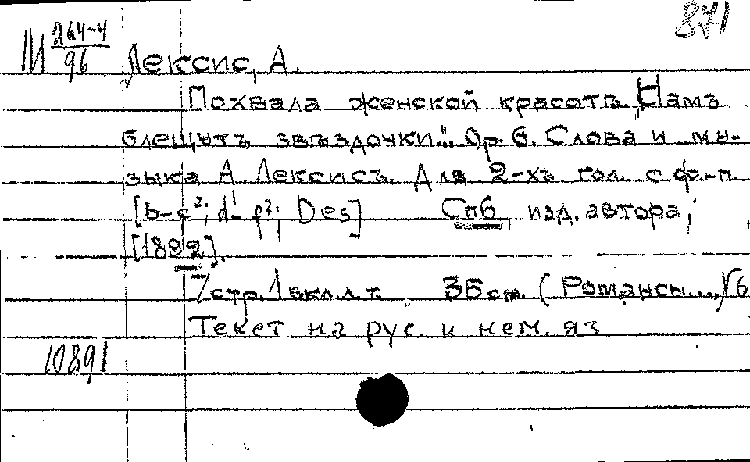 871
М 264-4
96
Лексис, А.
Похвала женской красотѣ. „Намъ
блещутъ звѣздочки". Ор. 6. Слова и му-
зыка А. Лексисъ. Для 2-хъ гол. с ф-п.
[b-c²; d'-f²; Des] Спб, изд. автора,
[1892].
7 стр. 1 вкл. л. т. 35 см. (Романсы...) 6
Текст на рус. и нем. яз
10891